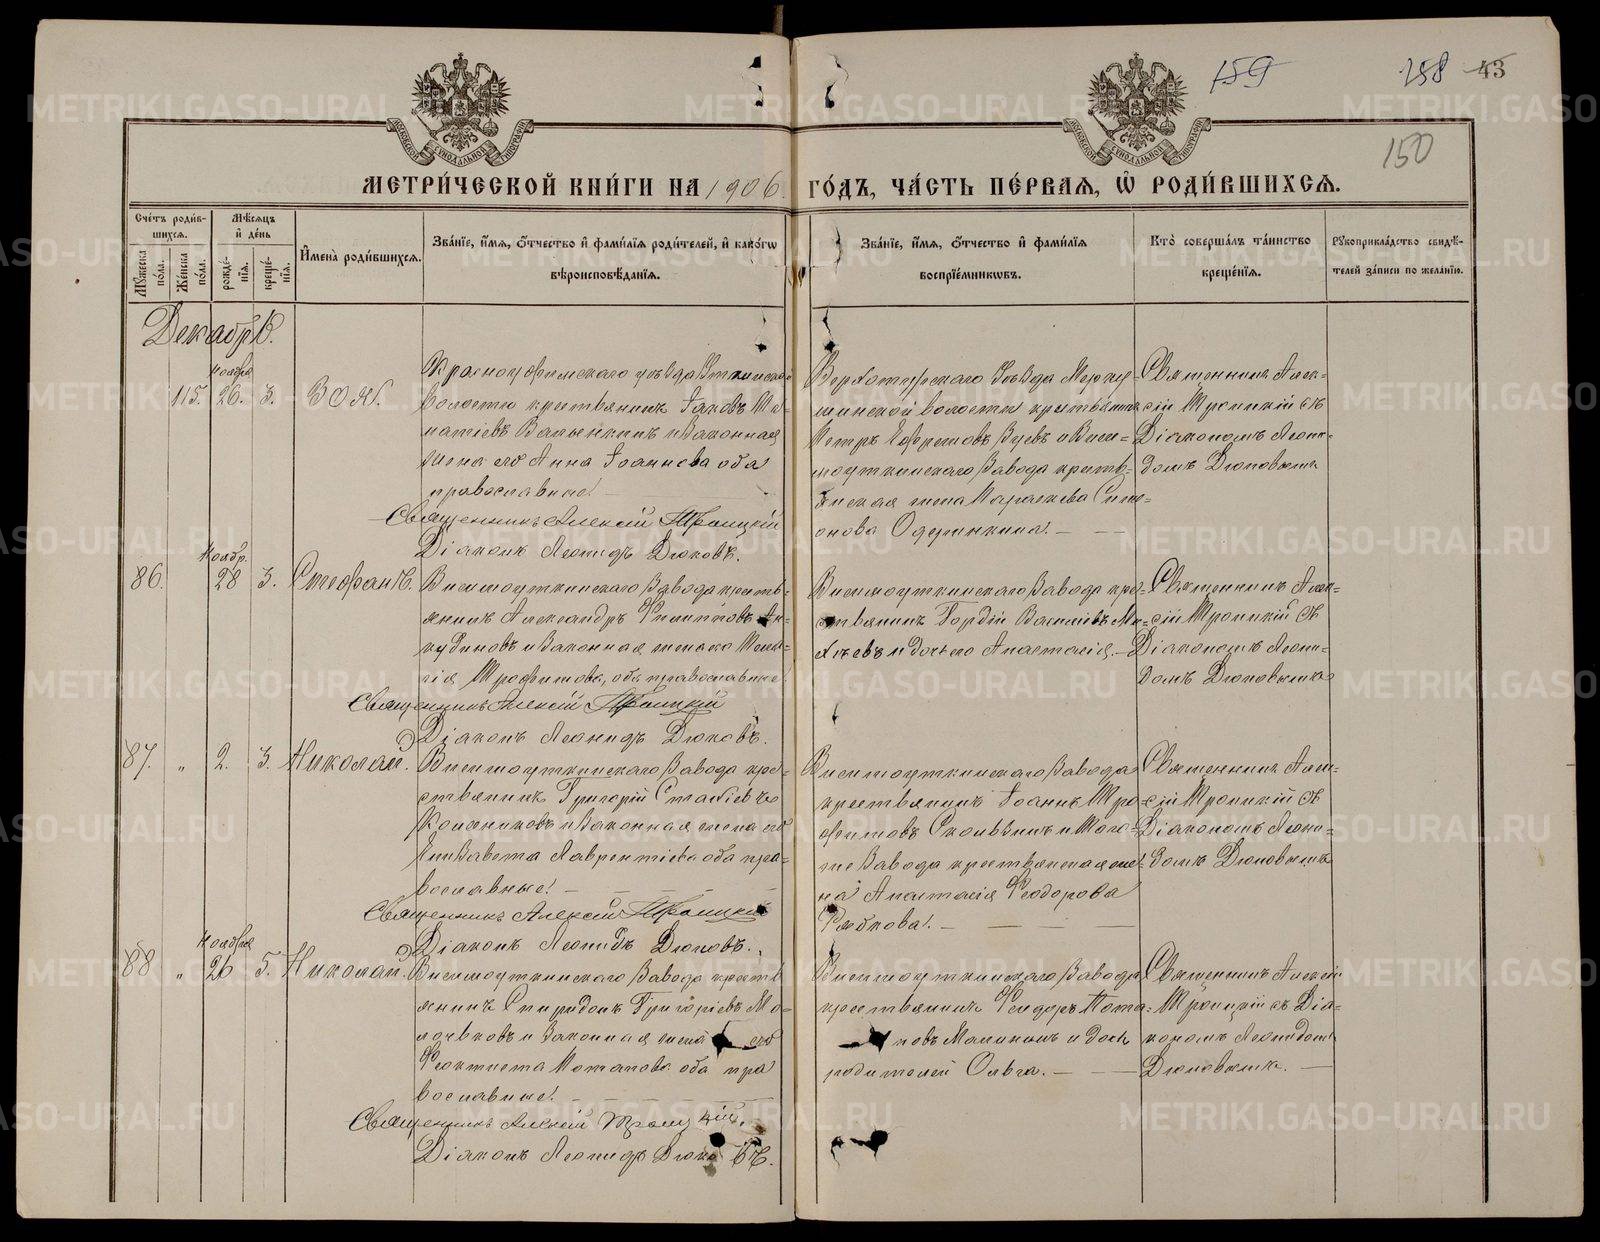 159
258 43
150
МОСКОВСКОЙ СѴНОДАЛЬНОЙ ТИПОГРАФІИ
МОСКОВСКОЙ СѴНОДАЛЬНОЙ ТИПОГРАФІИ
МЕТРИ́ЧЕСКОЙ КНИ́ГИ НА 1906 ГО́ДЪ, ЧА́СТЬ ПЕ́РВАЯ, Ѡ҆ РОДИ́ВШИХСЯ.
Сче́тъ роди́в-
шихся.
Мѣ́сяцъ
и҆ де́нь
Мꙋ́жеска по́ла.
Же́нска по́ла.
рожде́-нїѧ.
креще́-нїѧ.
И҆мена̀ роди́вшихся.
Зва́нїе, и҆́мя, ѻ҆́тчество и҆ фами́лїя роди́телей, и҆ како́гѡ
вѣроисповѣ́данїя.
Зва́нїе, и҆́мя, ѻ҆́тчество и҆ фами́лїя
воспрїе́мникѡвъ.
Кто̀ соверша́лъ та́инство
креще́нїя.
Рꙋкоприкла́дство свидѣ́-
телей за́писи по жела́нїю.
Декабрь.
Ноября
115. 26. 3. Зоя.
Красноуфимскаго уѣзда Уткинской
волости крестьянинъ Іаковъ Иг-
натіевъ и законная
жена его Анна Іоаннова оба
православные.
Священникъ Алексій Троицкій
Діаконъ Леонидъ Дюковъ.
Верхотурскаго Уѣзда Мерку-
шинской волости крестьянинъ
Петръ Ефремовъ Зуевъ и Виси-
моуткинскаго Завода кресть-
янская жена Параскева Симе-
онова Одегинкина.
Священникъ Алек-
сій Троицкій съ
Діакономъ Леони-
домъ Дюковымъ
Ноябр.
86. 28 3. Стефанъ.
Висимоуткинскаго Завода кресть-
янинъ Александръ Филипповъ Ан-
кудиновъ и законная жена его Пела-
гія Трофимова, оба православные
Священникъ Алексій Троицкій
Діаконъ Леонидъ Дюковъ.
Висимоуткинскаго Завода кре-
стьянинъ Гордій Васильевъ Ми-
хѣевъ и дочь его Анастасія.
Священникъ Алек-
сій Троицкій съ
Діакономъ Леони-
домъ Дюковымъ
87. „ 2. 3. Николай.
Висимоуткинскаго Завода кре-
стьянинъ Григорій Статіевъ
и законная жена его
Елизавета Лаврентіева оба пра-
вославные.
Священникъ Алексій Троицкій
Діаконъ Леонидъ Дюковъ.
Висимоуткинскаго Завода
крестьянинъ Іоаннъ Тро-
фимовъ и того-
же Завода крестьянская же-
на Анастасія Ѳеодорова
Рябкова.
Священникъ Алек-
сій Троицкій съ
Діакономъ Леони-
домъ Дюковымъ
Ноября
88. „ 26 5. Николай.
Висимоуткинскаго Завода кресть-
янинъ Спиридонъ Григоріевъ Мо-
лочковъ и законная жена его
Ѳеоктиста Потапова оба пра
вославные.
Священникъ Алексій Троицкій.
Діаконъ Леонидъ Дюковъ.
Висимоуткинскаго Завода
крестьянинъ Ѳеодоръ Пота-
повъ Малининъ и дочь
родителей Ольга.
Священникъ Алексій
Троицкій съ Діа-
кономъ Леонидомъ
Дюковымъ.
METRIKI.GASO-URAL.RU